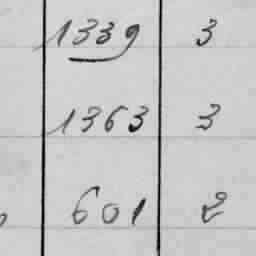 1339 3
1363 3
601 2